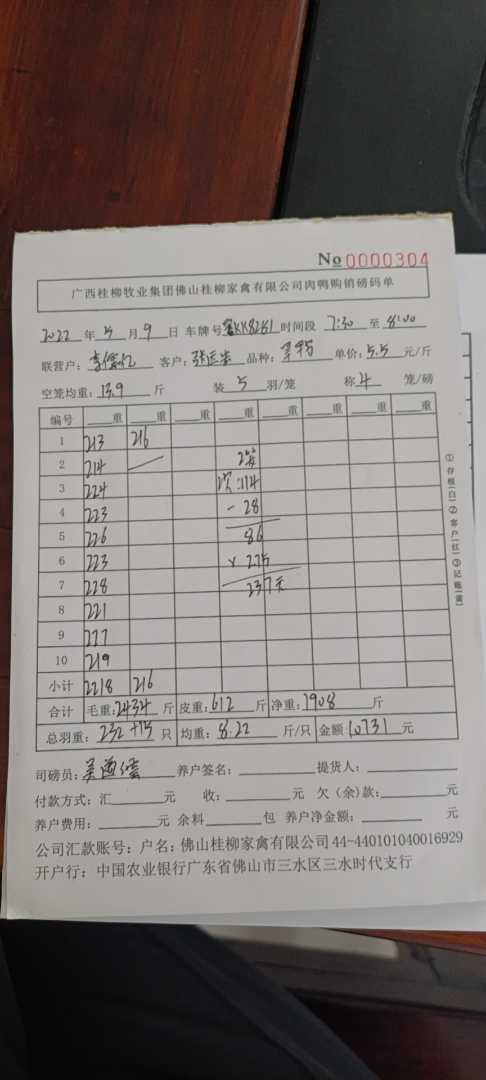 No 0000304
广西桂柳牧业集团佛山桂柳家禽有限公司肉鸭购销磅码单
2022 年 5 月 9 日 车牌号 KK8261 时间段 7:30 至 8:00
联营户： 客户： 品种： 单价：5.5 元/斤
空笼均重：13.9 斤 装 5 羽/笼 称 4 笼/磅
编号 重 重 重 重 重 重 重 重
1 213 216
2 214
3 224 次:114
4 223 - 28
5 226 86
6 223 × 2.75
7 228 237元
8 221
9 227
10 219
小计 2218 216
合计 毛重：2434 斤 皮重：612 斤 净重：1908 斤
总羽重：232+15 只 均重：8.22 斤/只 金额：10731 元
司磅员： 养户签名： 提货人：
付款方式：汇 元 收： 元 欠（余）款： 元
养户费用： 元 余料 包 养户净金额： 元
公司汇款账号：户名：佛山桂柳家禽有限公司 44-440101040016929
开户行：中国农业银行广东省佛山市三水区三水时代支行
①存根(白)②客户(红)③记账(黄)